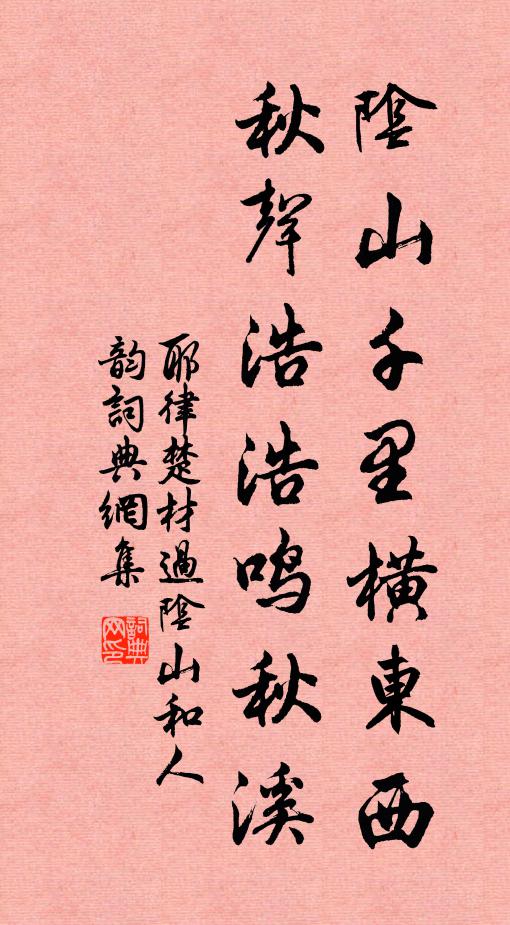 陰山千里橫東西
秋聲浩浩鳴秋溪
耶律楚材過陰山和人
韵詞典網集
詞典網印